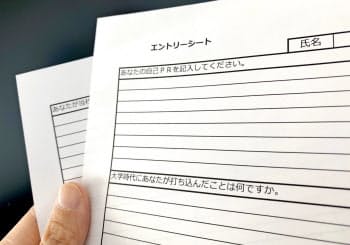 エントリーシート
氏名
あなたの自己PRを記入してください。
大学時代にあなたが打ち込んだことは何ですか。
あなたが当社